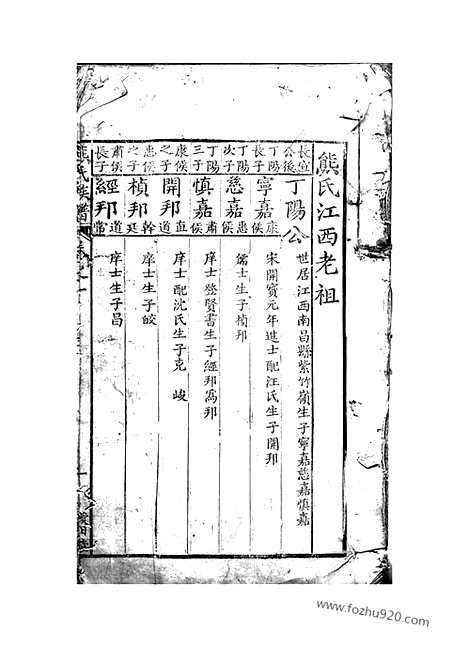 熊氏江西老祖
長宜公後
丁陽公
世居江西南昌縣紫竹嶺生子寧嘉慈嘉慎嘉
丁陽長子
寧嘉康侯
宋開寶元年進士配汪氏生子開邦
丁陽次子
慈嘉惠侯
儒士生子楨邦
丁陽三子
慎嘉肅侯
庠士登賢書生子經邦為邦
康侯之子
開邦直道
庠士配沈氏生子克 峻
惠侯之子
楨邦幹廷
庠士生子皎
肅侯長子
經邦道常
庠士生子昌
熊氏族譜
www.fozhu920.com